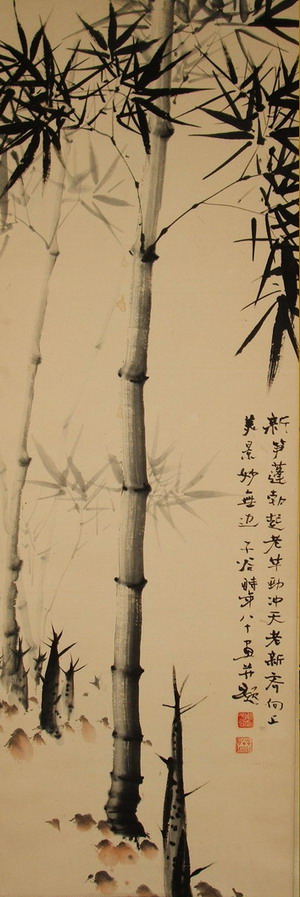 新笋蓬勃起老竹劲冲天老新齐向上
美景妙无边 不谷时年八十画并题